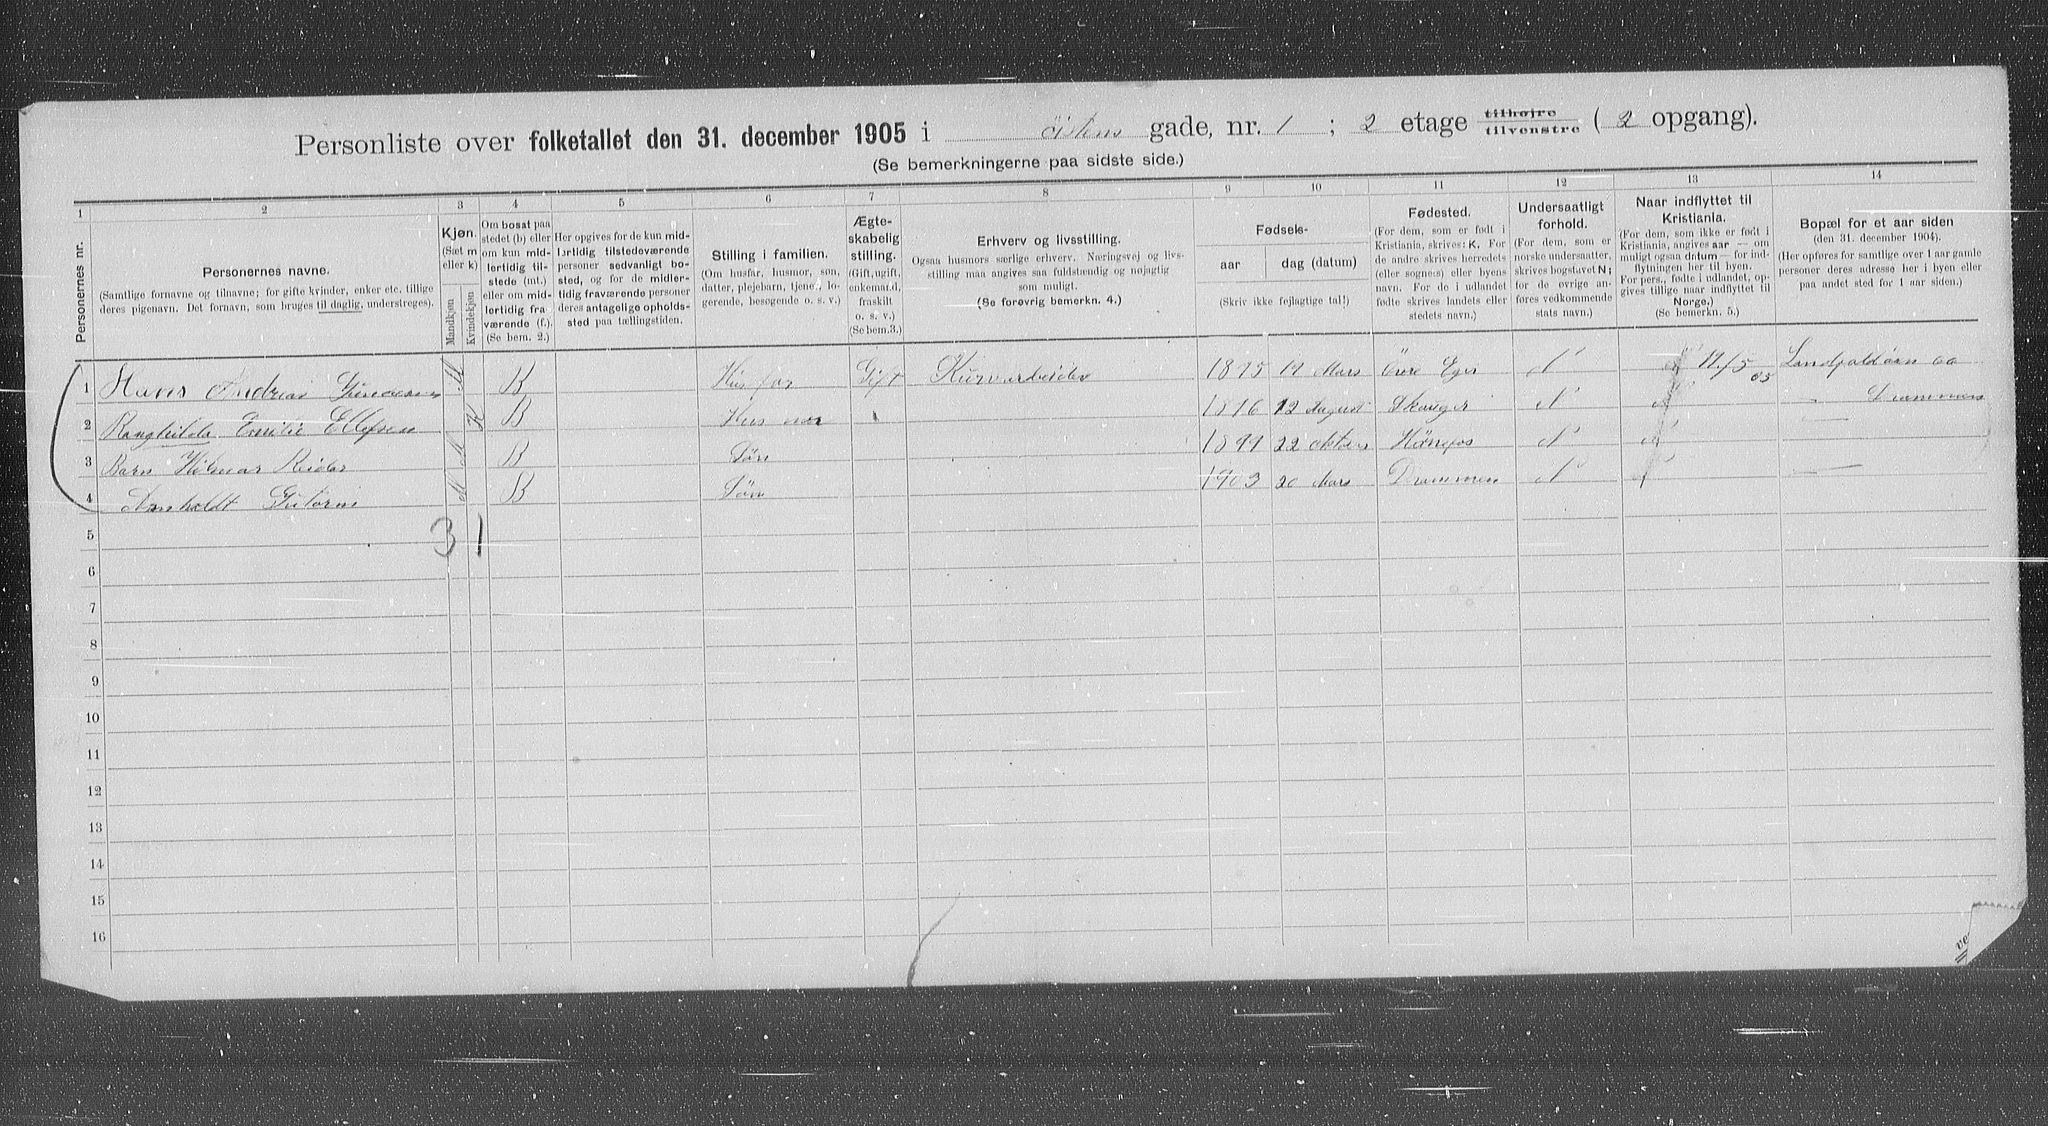 Personliste over folketallet den 31. december 1905 i Östens gade, nr. 1 ; 2 etage tilhøjre tilvenstre ( 2 opgang).
(Se bemerkningerne paa sidste side.)
1 2 3 4 5 6 7 8 9 10 11 12 13 14
Personernes nr.
Personernes navne.
(Samtlige fornavne og tilnavne; for gifte kvinder, enker etc. tillige
deres pigenavn. Det fornavn, som bruges til daglig, understreges).
Kjøn.
(Sæt m
eller k)
Mandkjøn
Kvindekjøn
Om bosat paa
stedet (b) eller
om kun mid-
lertidig til-
stede (mt.)
eller om mid-
lertidig fra-
værende (f.).
(Se bem. 2.)
Her opgives for de kun mid-
lertidig tilstedeværende
personer sedvanligt bo-
sted, og for de midler-
tidig fraværende personer
deres antagelige opholds-
sted paa tællingstiden.
Stilling i familien.
(Om husfar, husmor, søn,
datter, plejebarn, tjener, lo-
gerende, besøgende o. s. v.)
Ægte-
skabelig
stilling.
(Gift, ugift,
enkemand,
fraskilt
o. s. v.)
(Se bem.3.)
Erhverv og livsstilling.
Ogsaa husmors særlige erhverv. Næringsvej og livs-
stilling maa angives saa fuldstændig og nøjagtig
som muligt.
(Se forøvrig bemerkn. 4.)
Fødsels-
aar dag (datum)
(Skriv ikke fejlagtige tal!)
Fødested.
(For dem, som er født i
Kristiania, skrives: K. For
de andre skrives herredets
(eller sognets) eller byens
navn. For de i udlandet
fødte skrives landets eller
stedets navn.)
Undersaatligt
forhold.
(For dem, som er
norske undersaatter,
skrives bogstavet N;
for de øvrige an-
føres vedkommende
stats navn.)
Naar indflyttet til
Kristiania.
(For dem, som ikke er født i
Kristiania, angives aar — om
muligt ogsaa datum — for ind-
flytningen her til byen.
For pers., fødte i udlandet, op-
gives tillige naar indflyttet til
Norge.)
(Se bemerkn. 5.)
Bopæl for et aar siden
(den 31. december 1904).
(Her opføres for samtlige over 1 aar gamle
personer deres adresse her i byen eller
paa andet sted for 1 aar siden.)
1 Hans Andreas M B Hus far Gift Kurvarbeider 1875 Mars Övre Eger N 05
2 Ranghilda Emilie Ellefsen K B Hus mor 1876 12 August Skouger N Drammen
3 Barn Hilmar Reidar M B Sön 1899 22 oktober Hönefos N
4 Arnholdt M B Sön 1903 20 Mars Drammen N
3 1
5
6
7
8
9
10
11
12
13
14
15
16